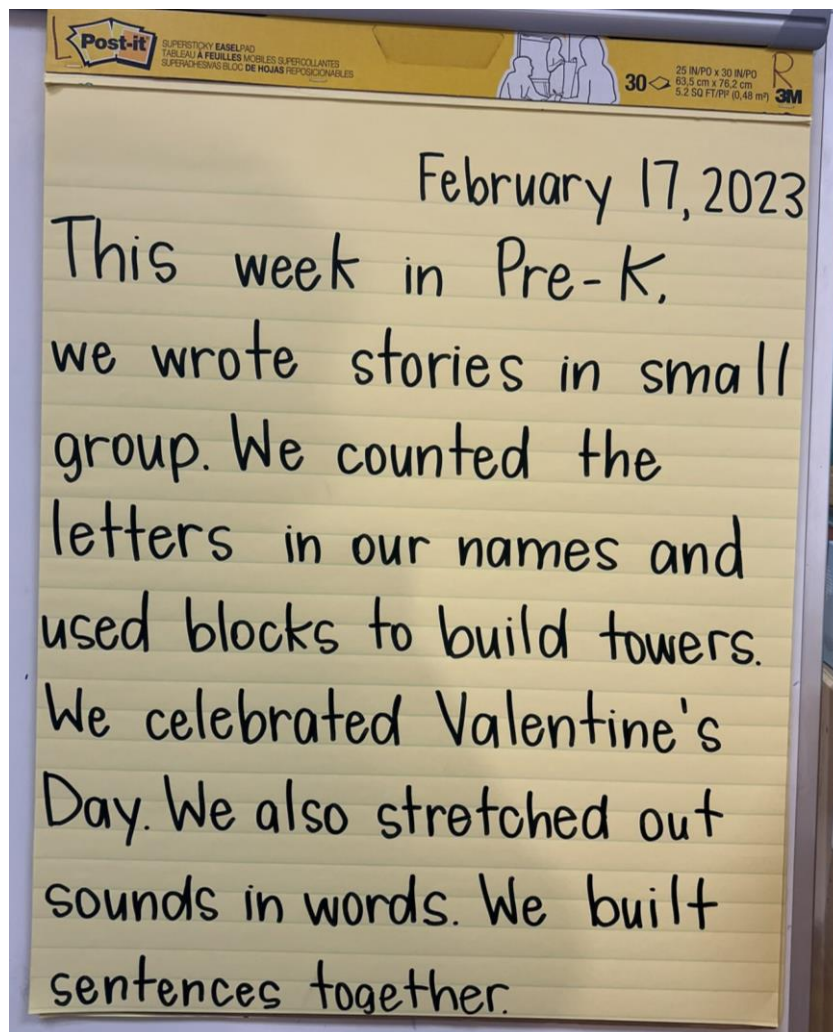 L Post-it
SUPERSTICKY EASEL PAD
TABLEAU À FEUILLES MOBILES SUPERCOLLANTES
SUPERADHESIVAS BLOC DE HOJAS REPOSICIONABLES
30
25 IN/PO x 30 IN/PO
63,5 cm x 76,2 cm
5.2 SQ FT/PI² (0,48 m²)
R
3M
February 17, 2023
This week in Pre-K,
we wrote stories in small
group. We counted the
letters in our names and
used blocks to build towers.
We celebrated Valentine's
Day. We also stretched out
sounds in words. We built
sentences together.